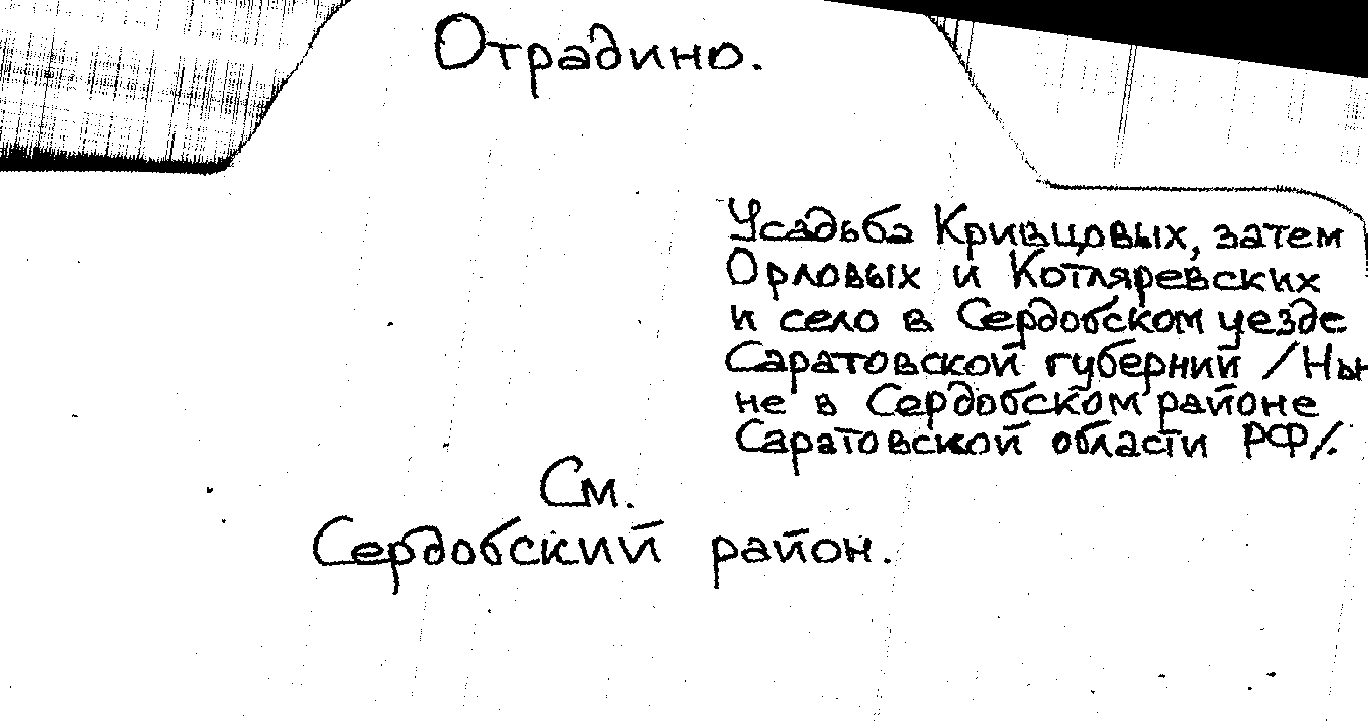 Отрадино.
Усадьба Кривцовых, затем
Орловых и Котляревских
и село в Сердобском уезде
Саратовской губерний /Ны
не в Сердобском районе
Саратовской области РФ/.
См.
Сердобский район.